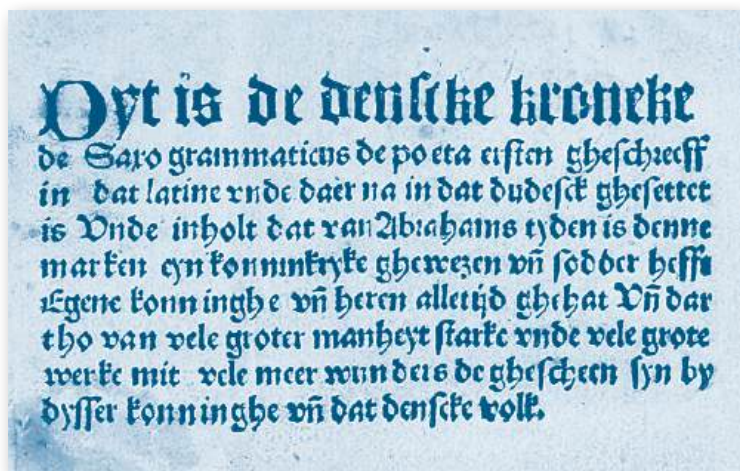 Dyt is de denscke kroneke
de Saxo grammaticus de poeta ersten gheschreeff
in dat latine vnde daer na in dat dudesck ghesettet
is Vnde inholt dat van Abrahams tyden is denne
marken eyn konninkryke ghewezen vñ sodder hefft
Egene konninghe vñ heren alletijd ghehat Vñ dar
tho van vele groter manheyt starke vnde vele grote
werke mit vele meer wunders de ghescheen syn by
dysser konninghe vñ dat denscke volk.